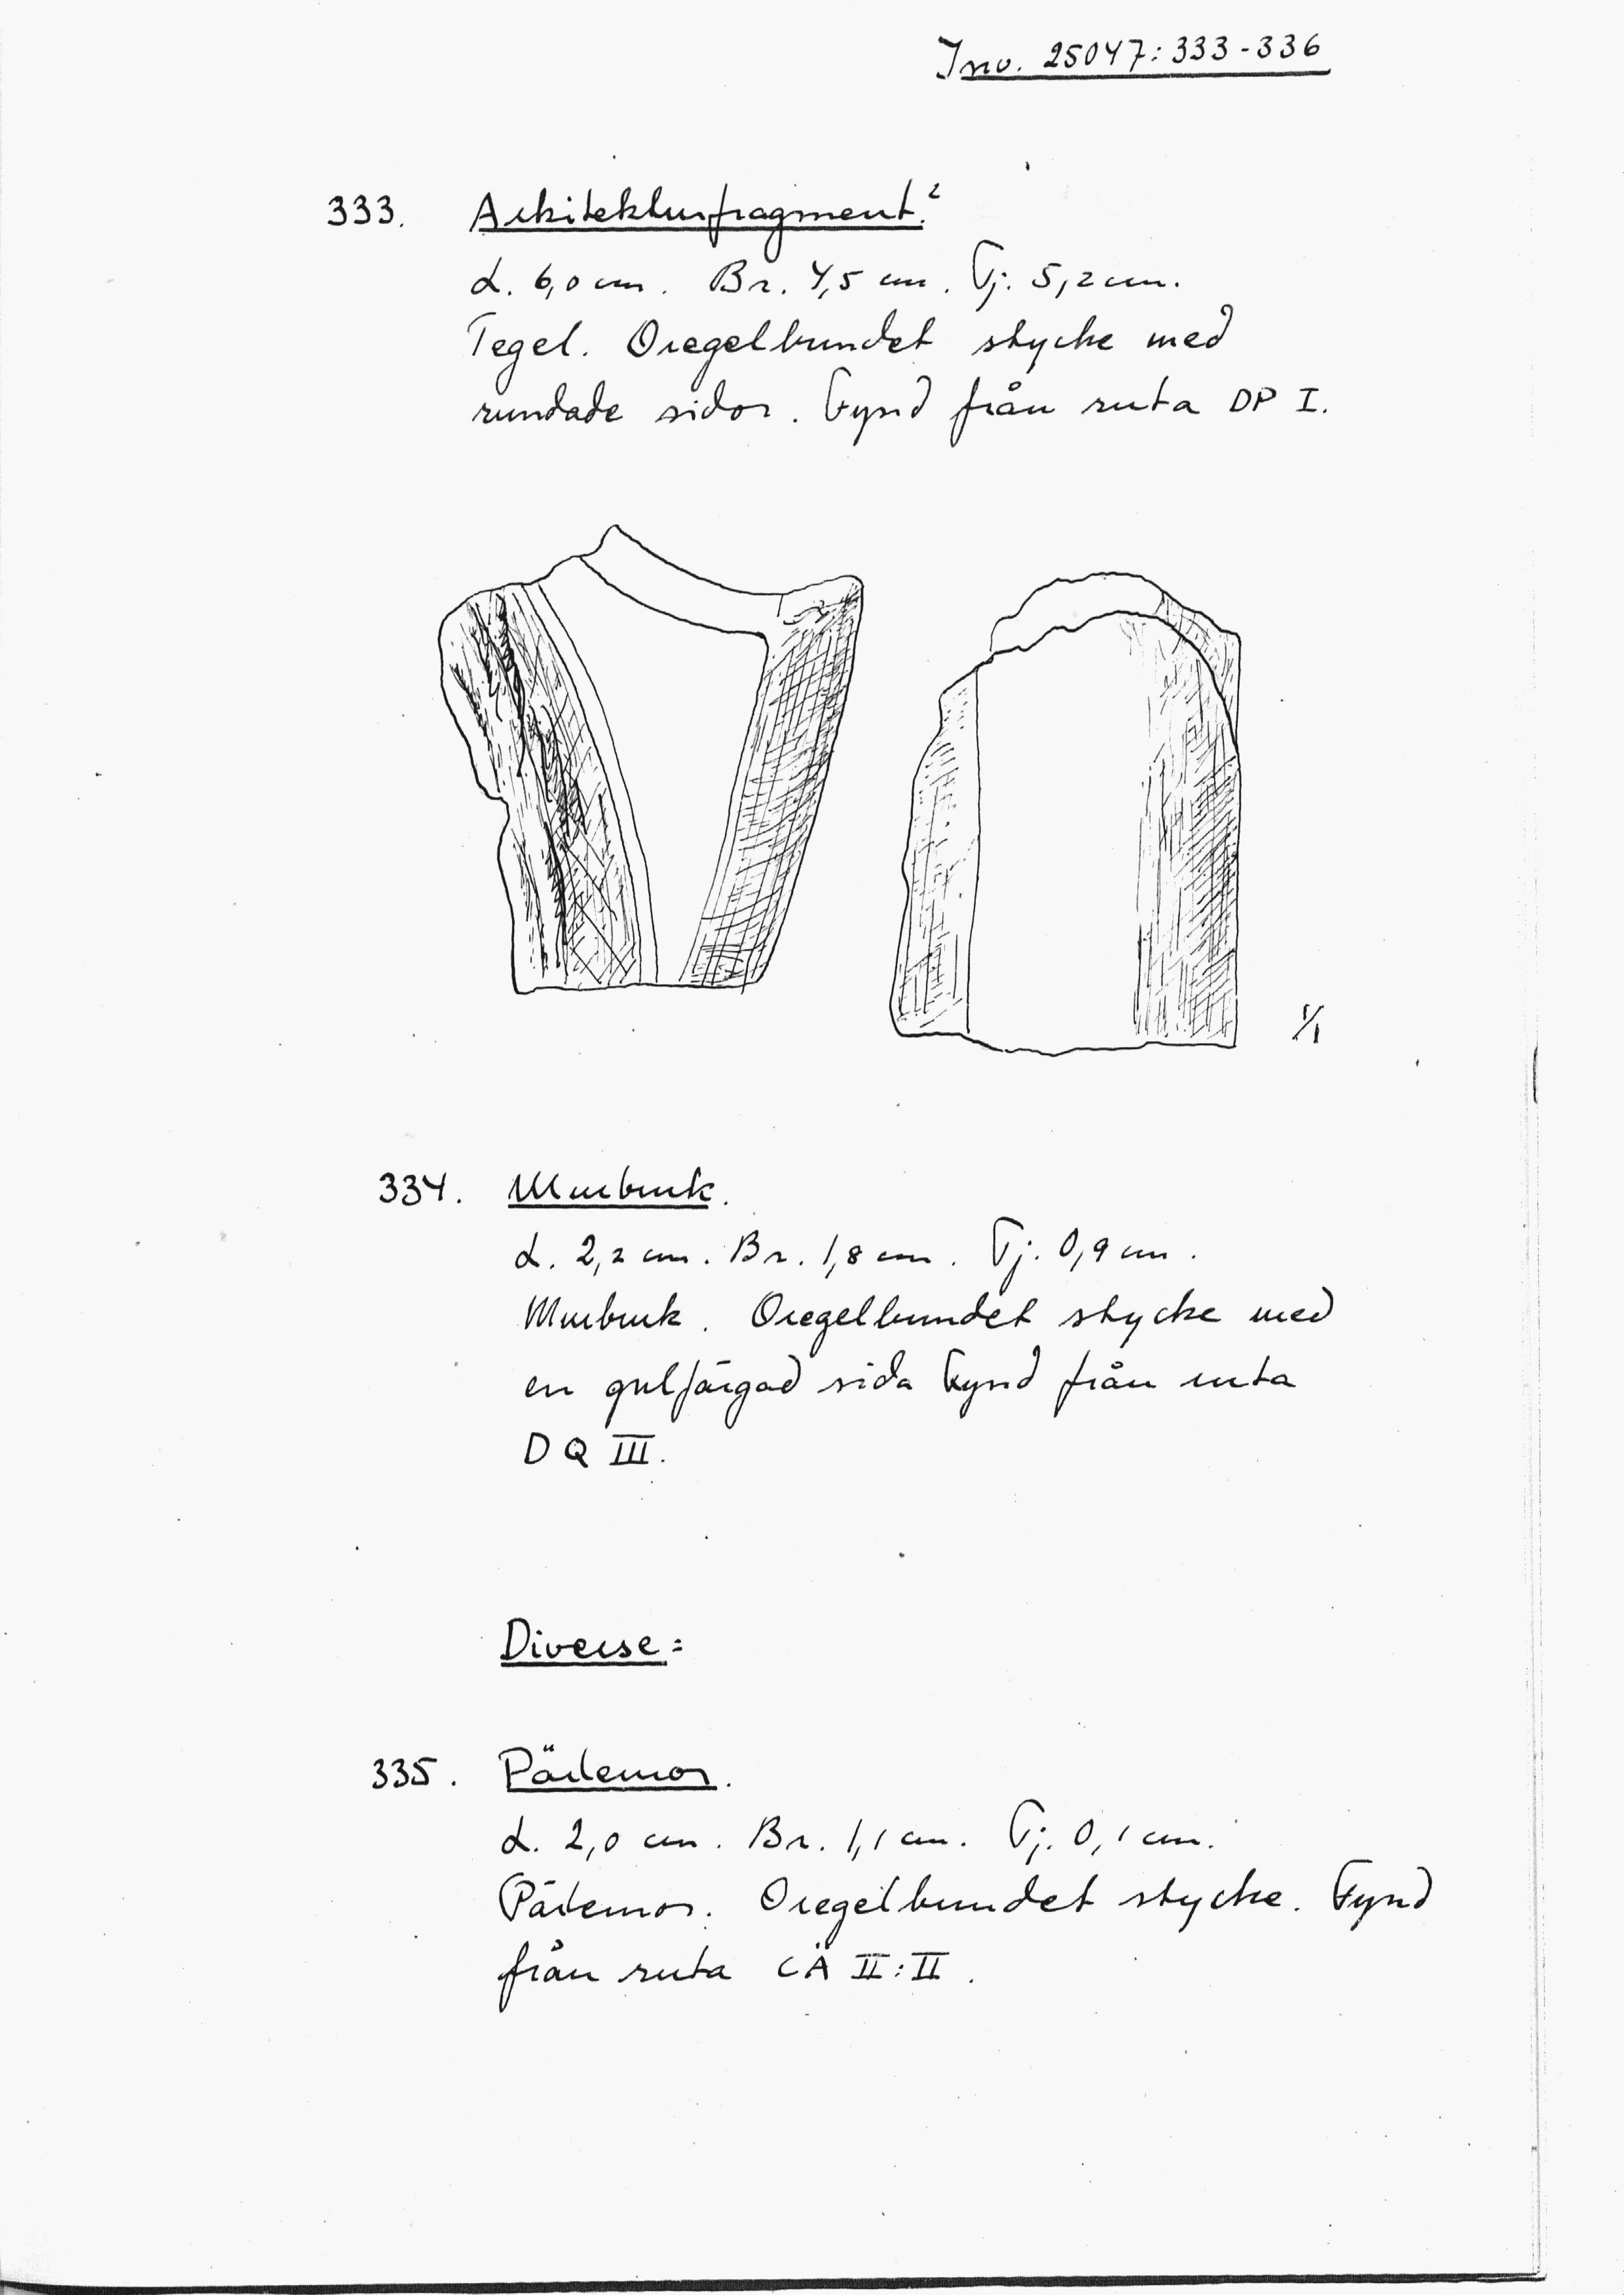 Inv. 25047:333-336
333. Arkitekturfragment.?
L. 6,0 cm. Br. 4,5 cm. Tj. 5,2 cm.
Tegel. Oregelbundet stycke med
rundade sidor. Fynd från ruta DP I.
1/1
334. Murbruk.
L. 2,2 cm. Br. 1,8 cm. Tj. 0,9 cm.
Murbruk. Oregelbundet stycke med
en gulfärgad sida Fynd från ruta
DQ III.
Diverse:
335. Pärlemor.
L. 2,0 cm. Br. 1,1 cm. Tj. 0,1 cm.
Pärlemor. Oregelbundet stycke. Fynd
från ruta CÄ II:II.